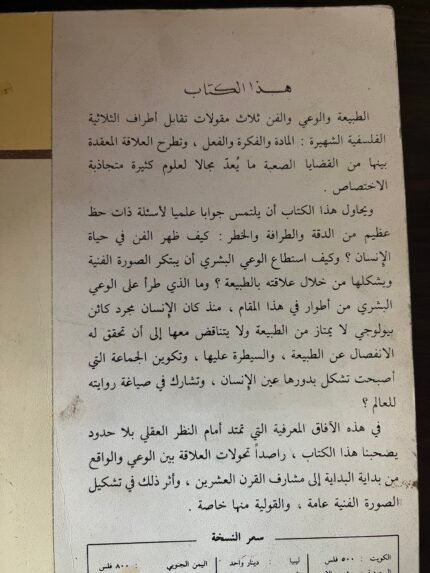 هذا الكتاب
الطبيعة والوعي والفن ثلاث مقولات تقابل أطراف الثلاثية
الفلسفية الشهيرة : المادة والفكرة والفعل ، وتطرح العلاقة المعقدة
بينها من القضايا الصعبة ما يُعدّ مجالا لعلوم كثيرة متجاذبة
الاختصاص .
ويحاول هذا الكتاب أن يلتمس جوابا علميا لأسئلة ذات حظ
عظيم من الدقة والطرافة والخطر : كيف ظهر الفن في حياة
الإنسان ؟ وكيف استطاع الوعي البشري أن يبتكر الصورة الفنية
ويشكلها من خلال علاقته بالطبيعة ؟ وما الذي طرأ على الوعي
البشري من أطوار في هذا المقام ، منذ كان الإنسان مجرد كائن
بيولوجي لا يمتاز من الطبيعة ولا يتناقض معها إلى أن تحقق له
الانفصال عن الطبيعة ، والسيطرة عليها ، وتكوين الجماعة التي
أصبحت تشكل بدورها عين الإنسان ، وتشارك في صياغة روايته
للعالم ؟
في هذه الآفاق المعرفية التي تمتد أمام النظر العقلي بلا حدود
يضحبنا هذا الكتاب ، راصداً تحولات العلاقة بين الوعي والواقع
من بداية البداية إلى مشارف القرن العشرين ، وأثر ذلك في تشكيل
الصورة الفنية عامة ، والقولية منها خاصة .
سعر النسخة
الكويت : ٥٠٠ فلس ليبيا : دينار واحد اليمن الجنوبي : ٨٠٠ فلس